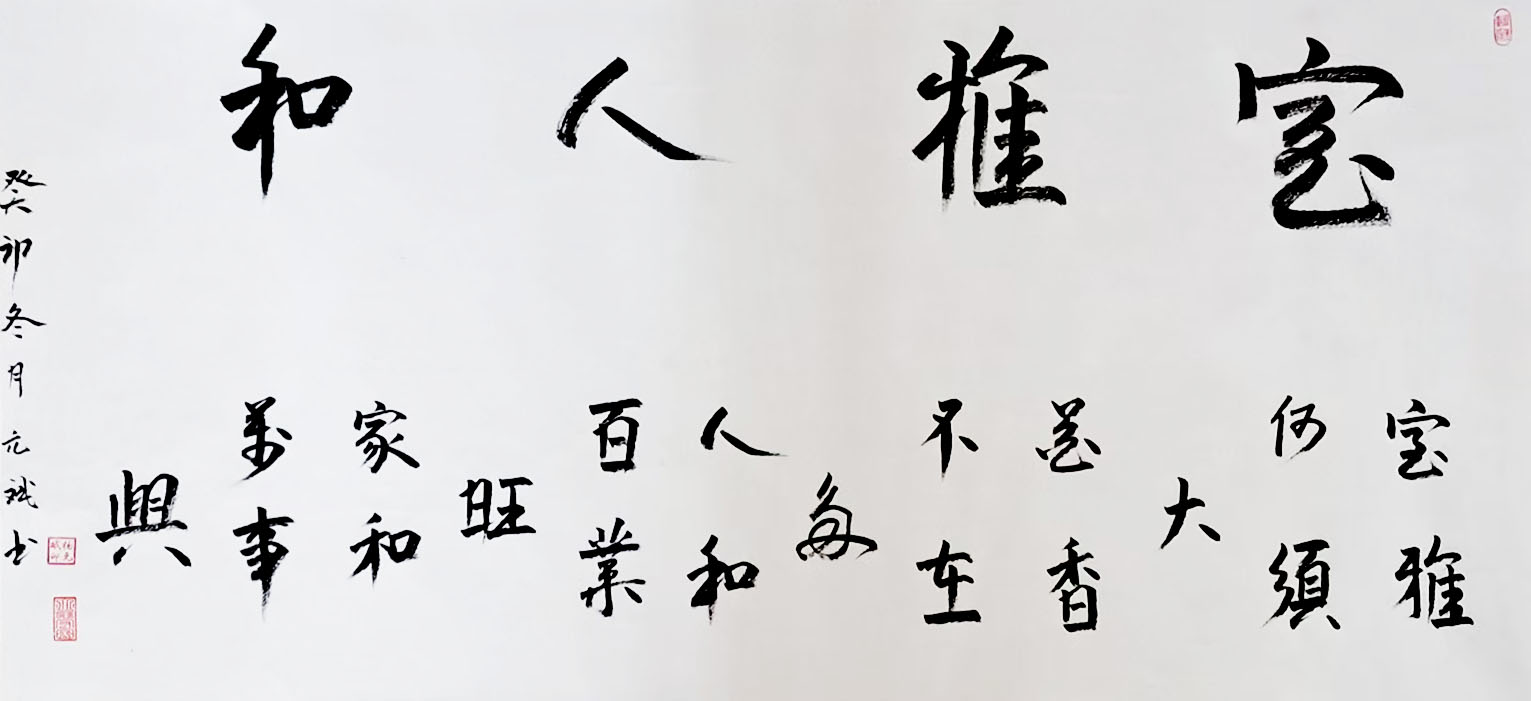 室雅人和
室雅
何須
大
花香
不在
多
人和
百業
旺
家和
萬事
興
癸卯冬月 元斌书